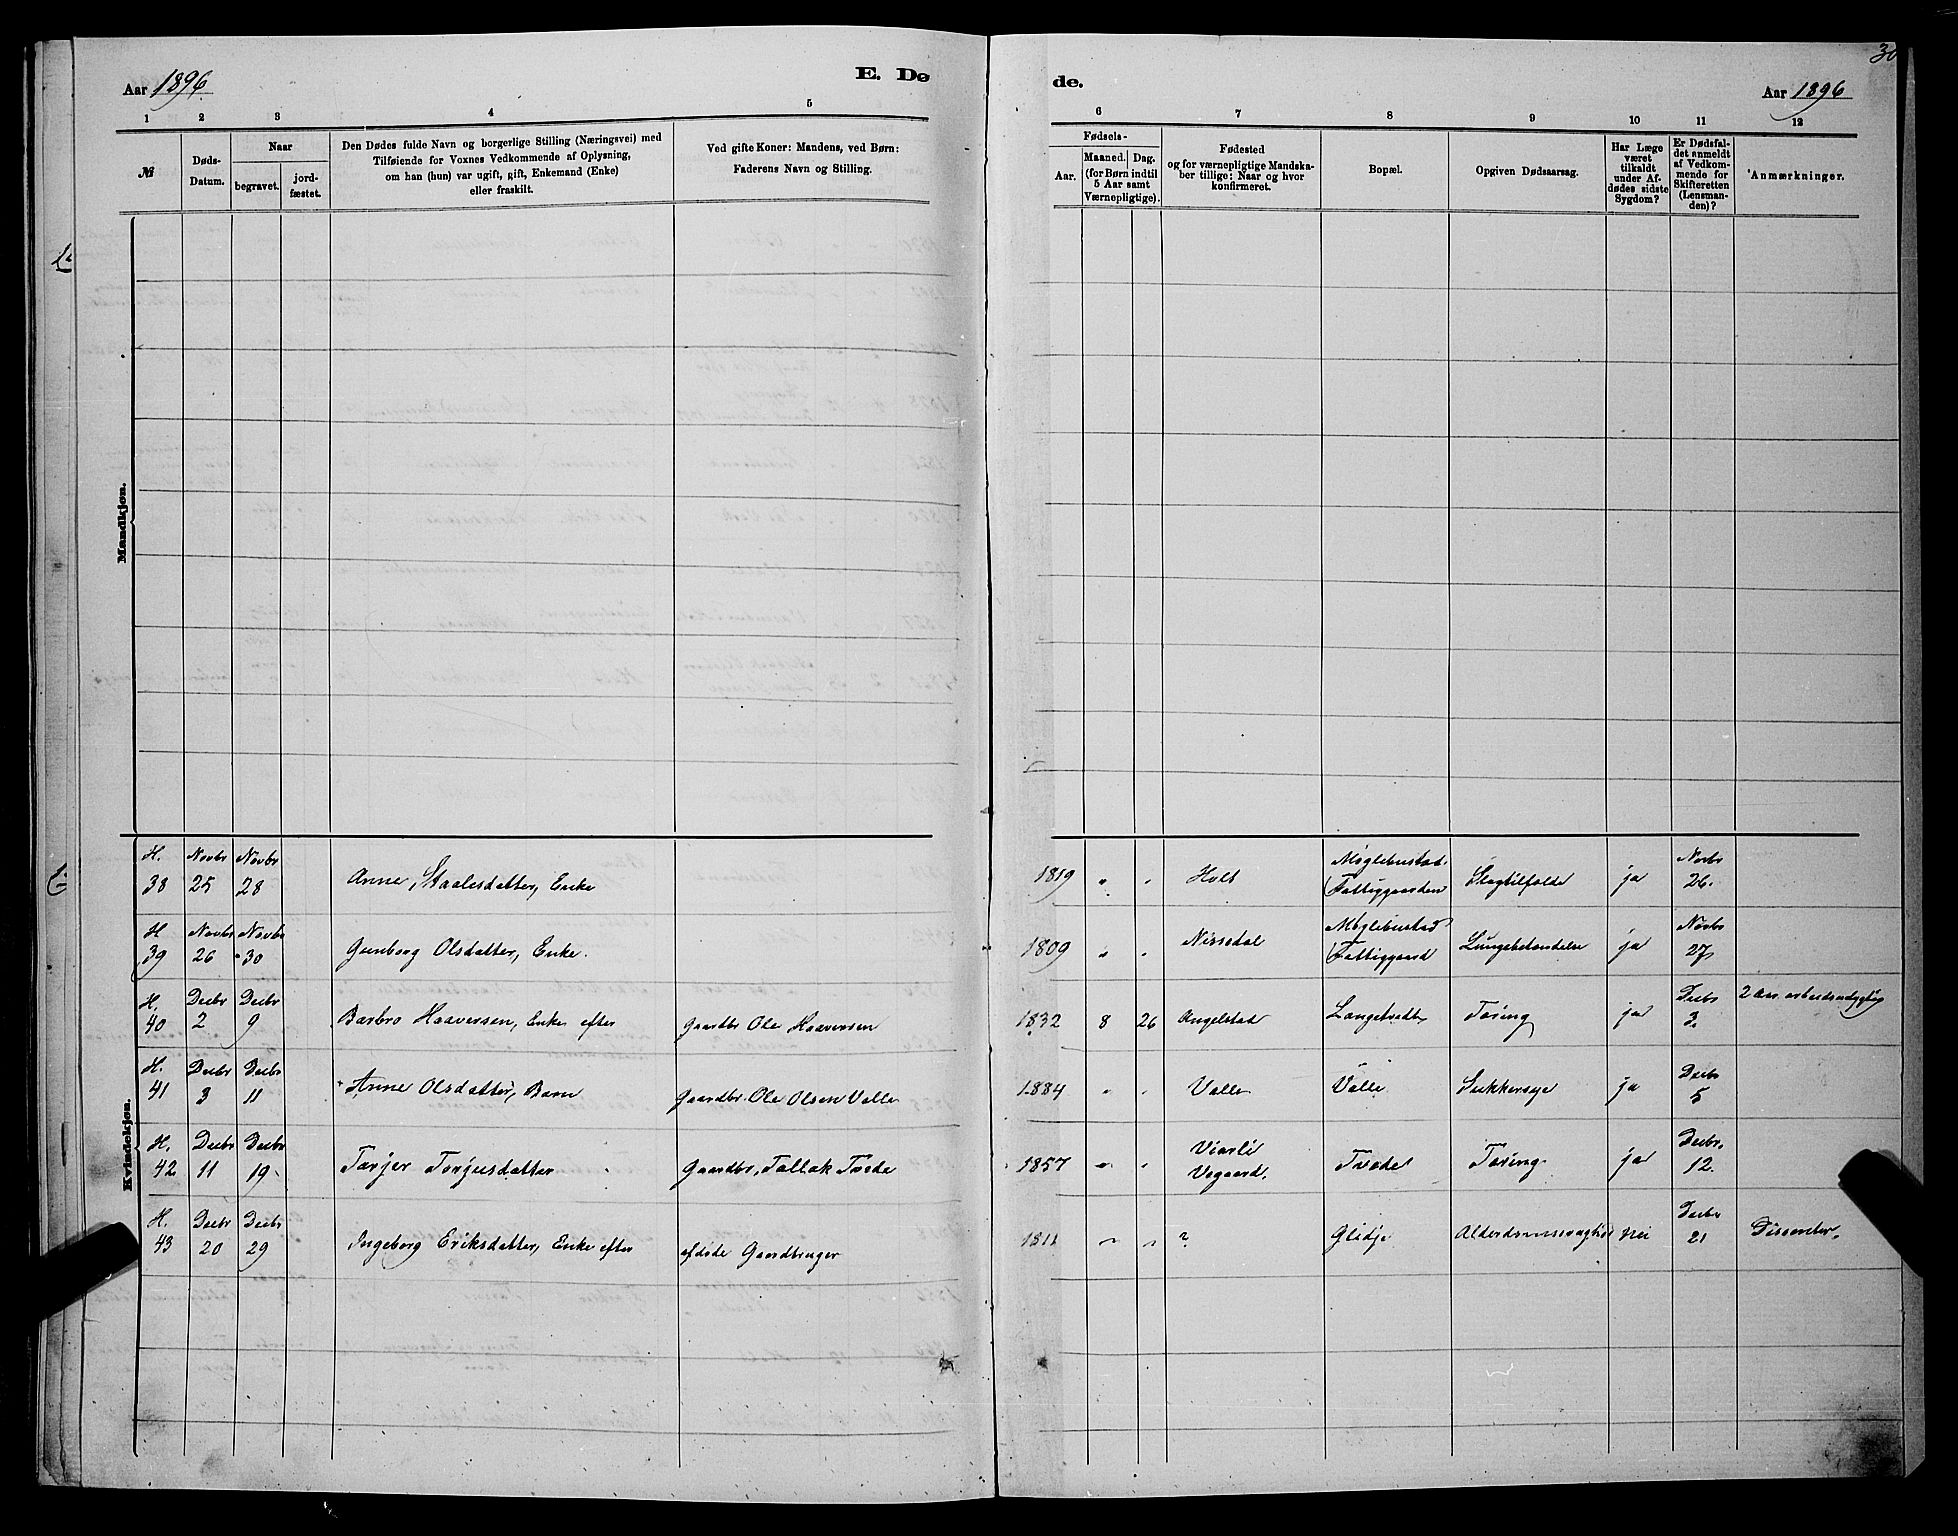 Aar 1896
E. Dø
de.
Aar 1896
1 2 3 4 5 6 7 8 9 10 11 12
№
Døds-
Datum.
Naar
begravet.
jord-
fæstet.
Den Dødes fulde Navn og borgerlige Stilling (Næringsvei) med
Tilføiende for Voxnes Vedkommende af Oplysning,
om han (hun) var ugift, gift, Enkemand (Enke)
eller fraskilt.
Ved gifte Koner: Mandens, ved Børn:
Faderens Navn og Stilling.
Fødsels-
Aar.
Maaned. Dag.
(for Børn indtil
5 Aar samt
Værnepligtige).
Fødested
og for værnepligtige Mandska-
ber tillige: Naar og hvor
konfirmeret.
Bopæl.
Opgiven Dødsaarsag.
Har Læge
været
tilkaldt
under Af-
dødes sidste
Sygdom?
Er Dødsfal-
det anmeldt
af Vedkom-
mende for
Skifteretten
(Lensman-
den)?
Anmærkninger.
Mandkjøn.
Kvindekjøn.
H. Novbr Novbr Møglebustad Novbr
38 25 28 Anne Staalesdatter, Enke 1819 " " Holt (Fattiggaarden Slagtilfælde ja 26.
H Novbr Novbr Møglebustad Novbr
39 26 30 Gunborg Olsdatter, Enke. 1809 " " Nissedal (Fattiggaard Lungebetændelse ja 27
H. Decbr Decbr Decbr 2 Aar
40 2 9 Barbro Haaversen, Enke efter Gaardbr Ole Haaversen 1832 8 26 Angelstad Langetvedt Tæring ja 3.
H. Decbr Decbr Decbr
41 3 11 Anne Olsdatter, Barn Gaardbr. Ole Olsen Valle 1884 " " Valle Valle Sukkersyge ja 5
H. Decbr Decbr Decbr.
42 11 19 Tarjer Torjusdatter Gaardbr, Tallak Tvede 1857 " " Vierli Vegaard. Tvede Tæring ja 12.
H. Decbr Decbr Decbr
43 20 29 Ingeborg Eriksdatter, Enke efter afdøde Gaardbruger 1811 " " ? Glidje Alderdomssvaghed Nei 21 Dissenter.